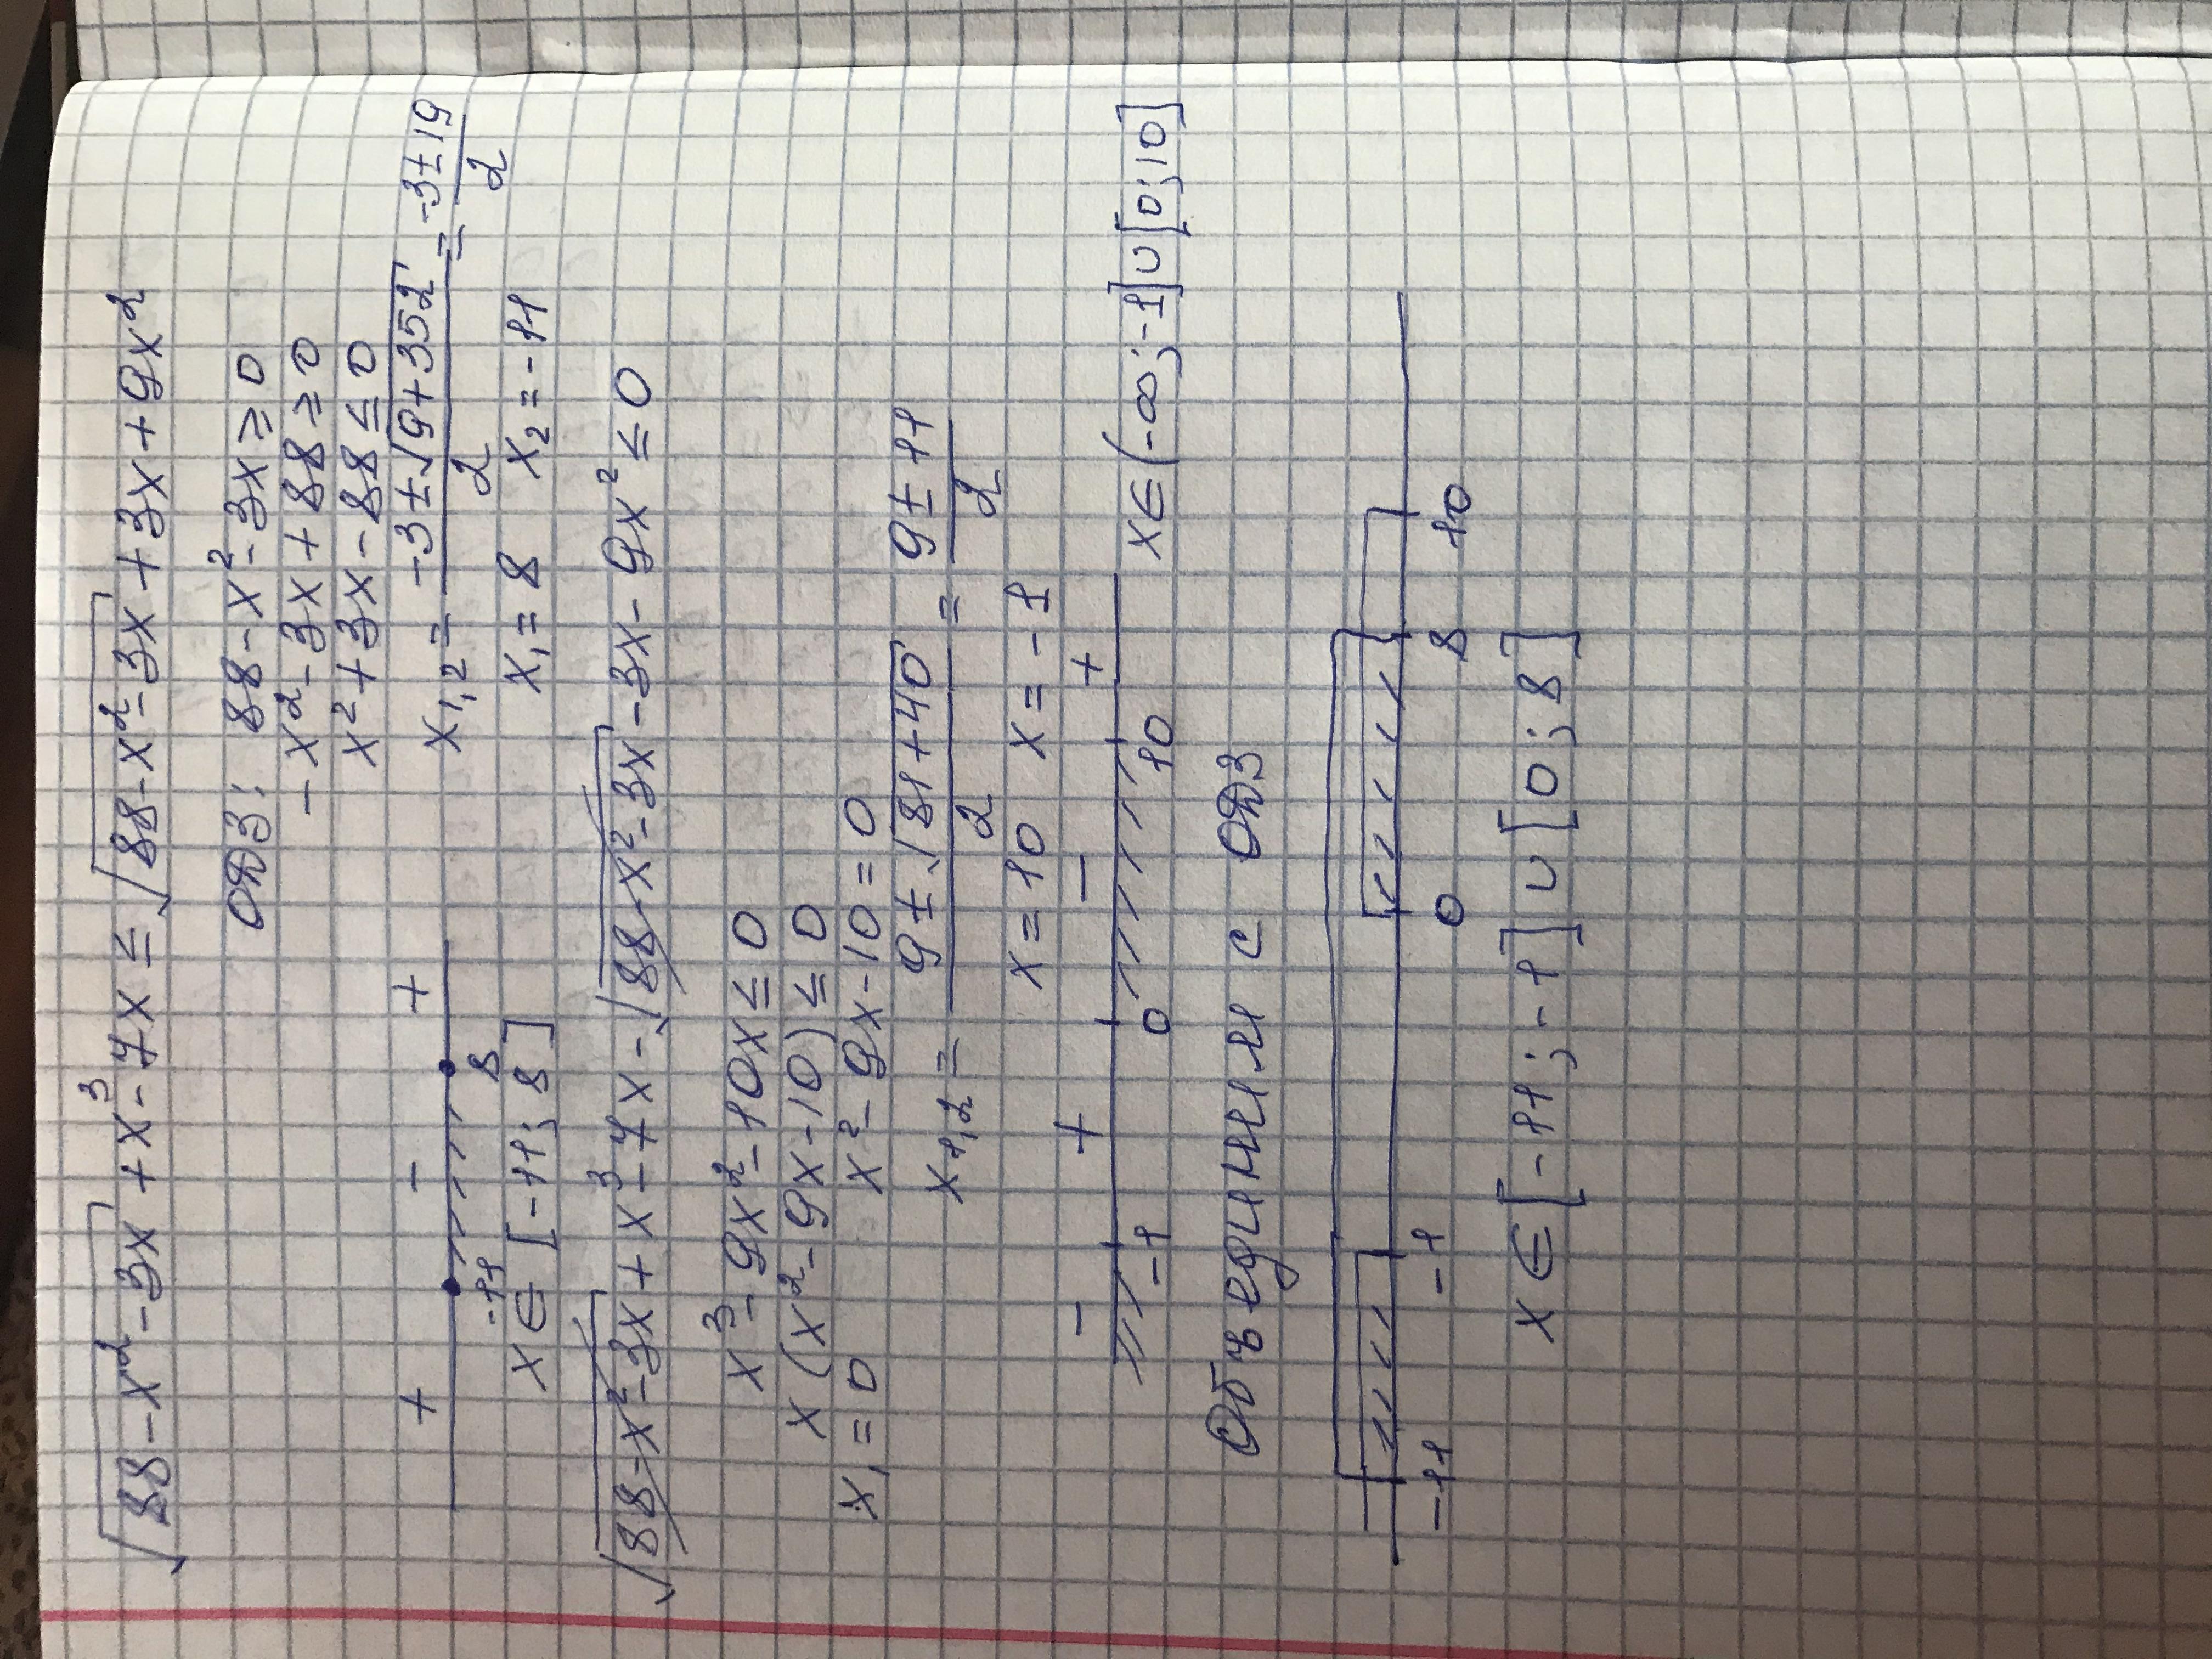 √(88-x²-3x) + x³-7x ≤ √(88-x²-3x) + 3x + 9x²
ОДЗ: 88-x²-3x ≥ 0
-x²-3x+88 ≥ 0
x²+3x-88 ≤ 0
x₁,₂ = (-3±√(9+352))/2 = (-3±19)/2
+ - +
-11 8
x₁ = 8 x₂ = -11
x ∈ [-11; 8]
√(88-x²-3x) + x³-7x-√(88-x²-3x)-3x-9x² ≤ 0
x³-9x²-10x ≤ 0
x(x²-9x-10) ≤ 0
x₁ = 0 x²-9x-10 = 0
x₁,₂ = (9±√(81+40))/2 = (9±11)/2
x = 10 x = -1
- + - +
-1 0 10
x ∈ (-∞; -1] ∪ [0; 10]
Объединим с ОДЗ
-11 -1 0 8 10
x ∈ [-11; -1] ∪ [0; 8]